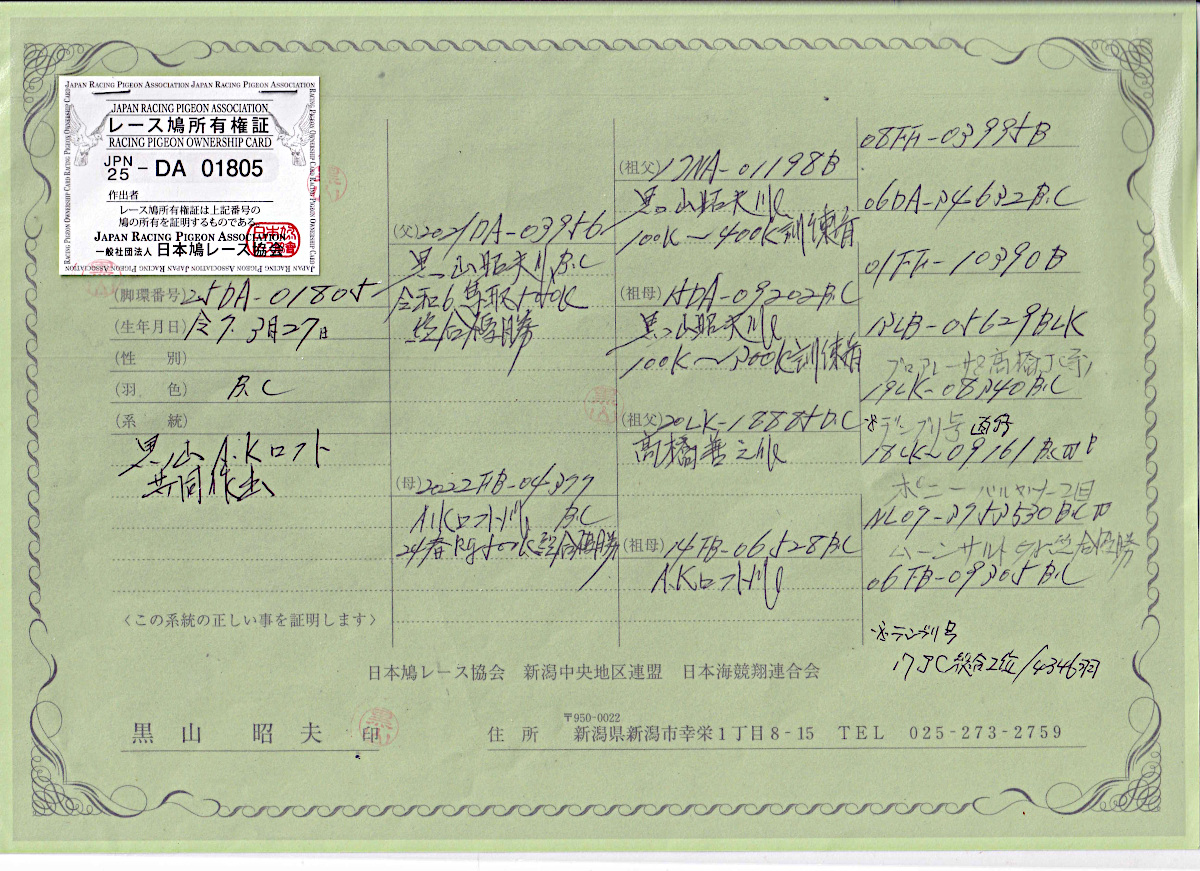 JAPAN RACING PIGEON ASSOCIATION JAPAN RACING PIGEON ASSOCIATION
JAPAN RACING PIGEON ASSOCIATION
レース鳩所有権証
RACING PIGEON OWNERSHIP CARD
JPN 25 - DA 01805
作出者
レース鳩所有権証は上記番号の
鳩の所有を証明するものである。
JAPAN RACING PIGEON ASSOCIATION
一般社団法人 日本鳩レース協会
(脚環番号) 25DA-01805
(生年月日) 令7.3月27日
(性 別)
(羽 色) B.C
(系 統)
黒山 A.Kロフト
共同作出
(父) 2021DA-03956
黒山昭夫 B.C
令和6
総合優勝
(母) 2022FB-04377
A.Kロフト B.C
24春 総合優勝
(祖父) 17NA-01198B
黒山昭夫
100K～400K訓練者
(祖母) 15DA-09202B.C
黒山昭夫
100K～300K訓練者
(祖父) 20LK-18885B.C
高橋善之
(祖母) 14FB-06528B.C
A.Kロフト
08FH-03995B
06DA-34632B.C
01FF-10390B
13LB-05629BLK
19LK-08340B.C
18LK-09161B.C
NL07-3753530B.C
ムーンサルト 総合優勝
06FB-09305B.C
総合2位/4346羽
〈この系統の正しい事を証明します〉
日本鳩レース協会 新潟中央地区連盟 日本海競翔連合会
黒山 昭夫 印
〒950-0022
住 所 新潟県新潟市幸栄1丁目8-15 TEL 025-273-2759